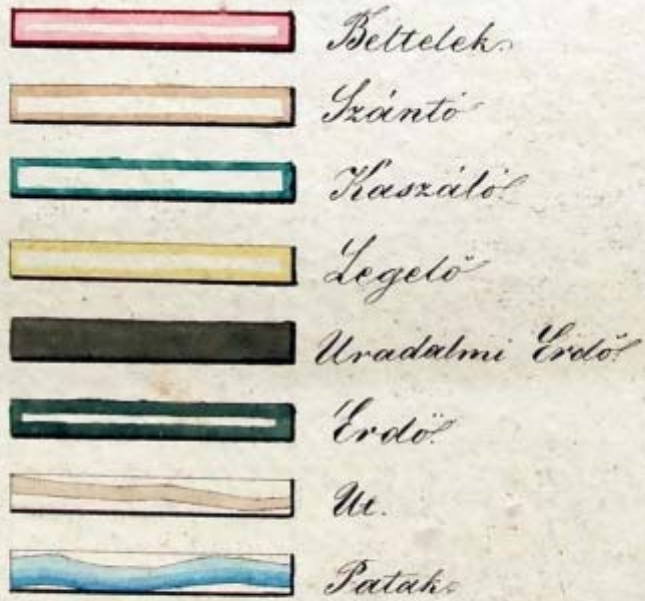 Beltelek.
Szántó
Kaszáló.
Legelő
Uradalmi Erdő.
Erdő.
Ut.
Patak.